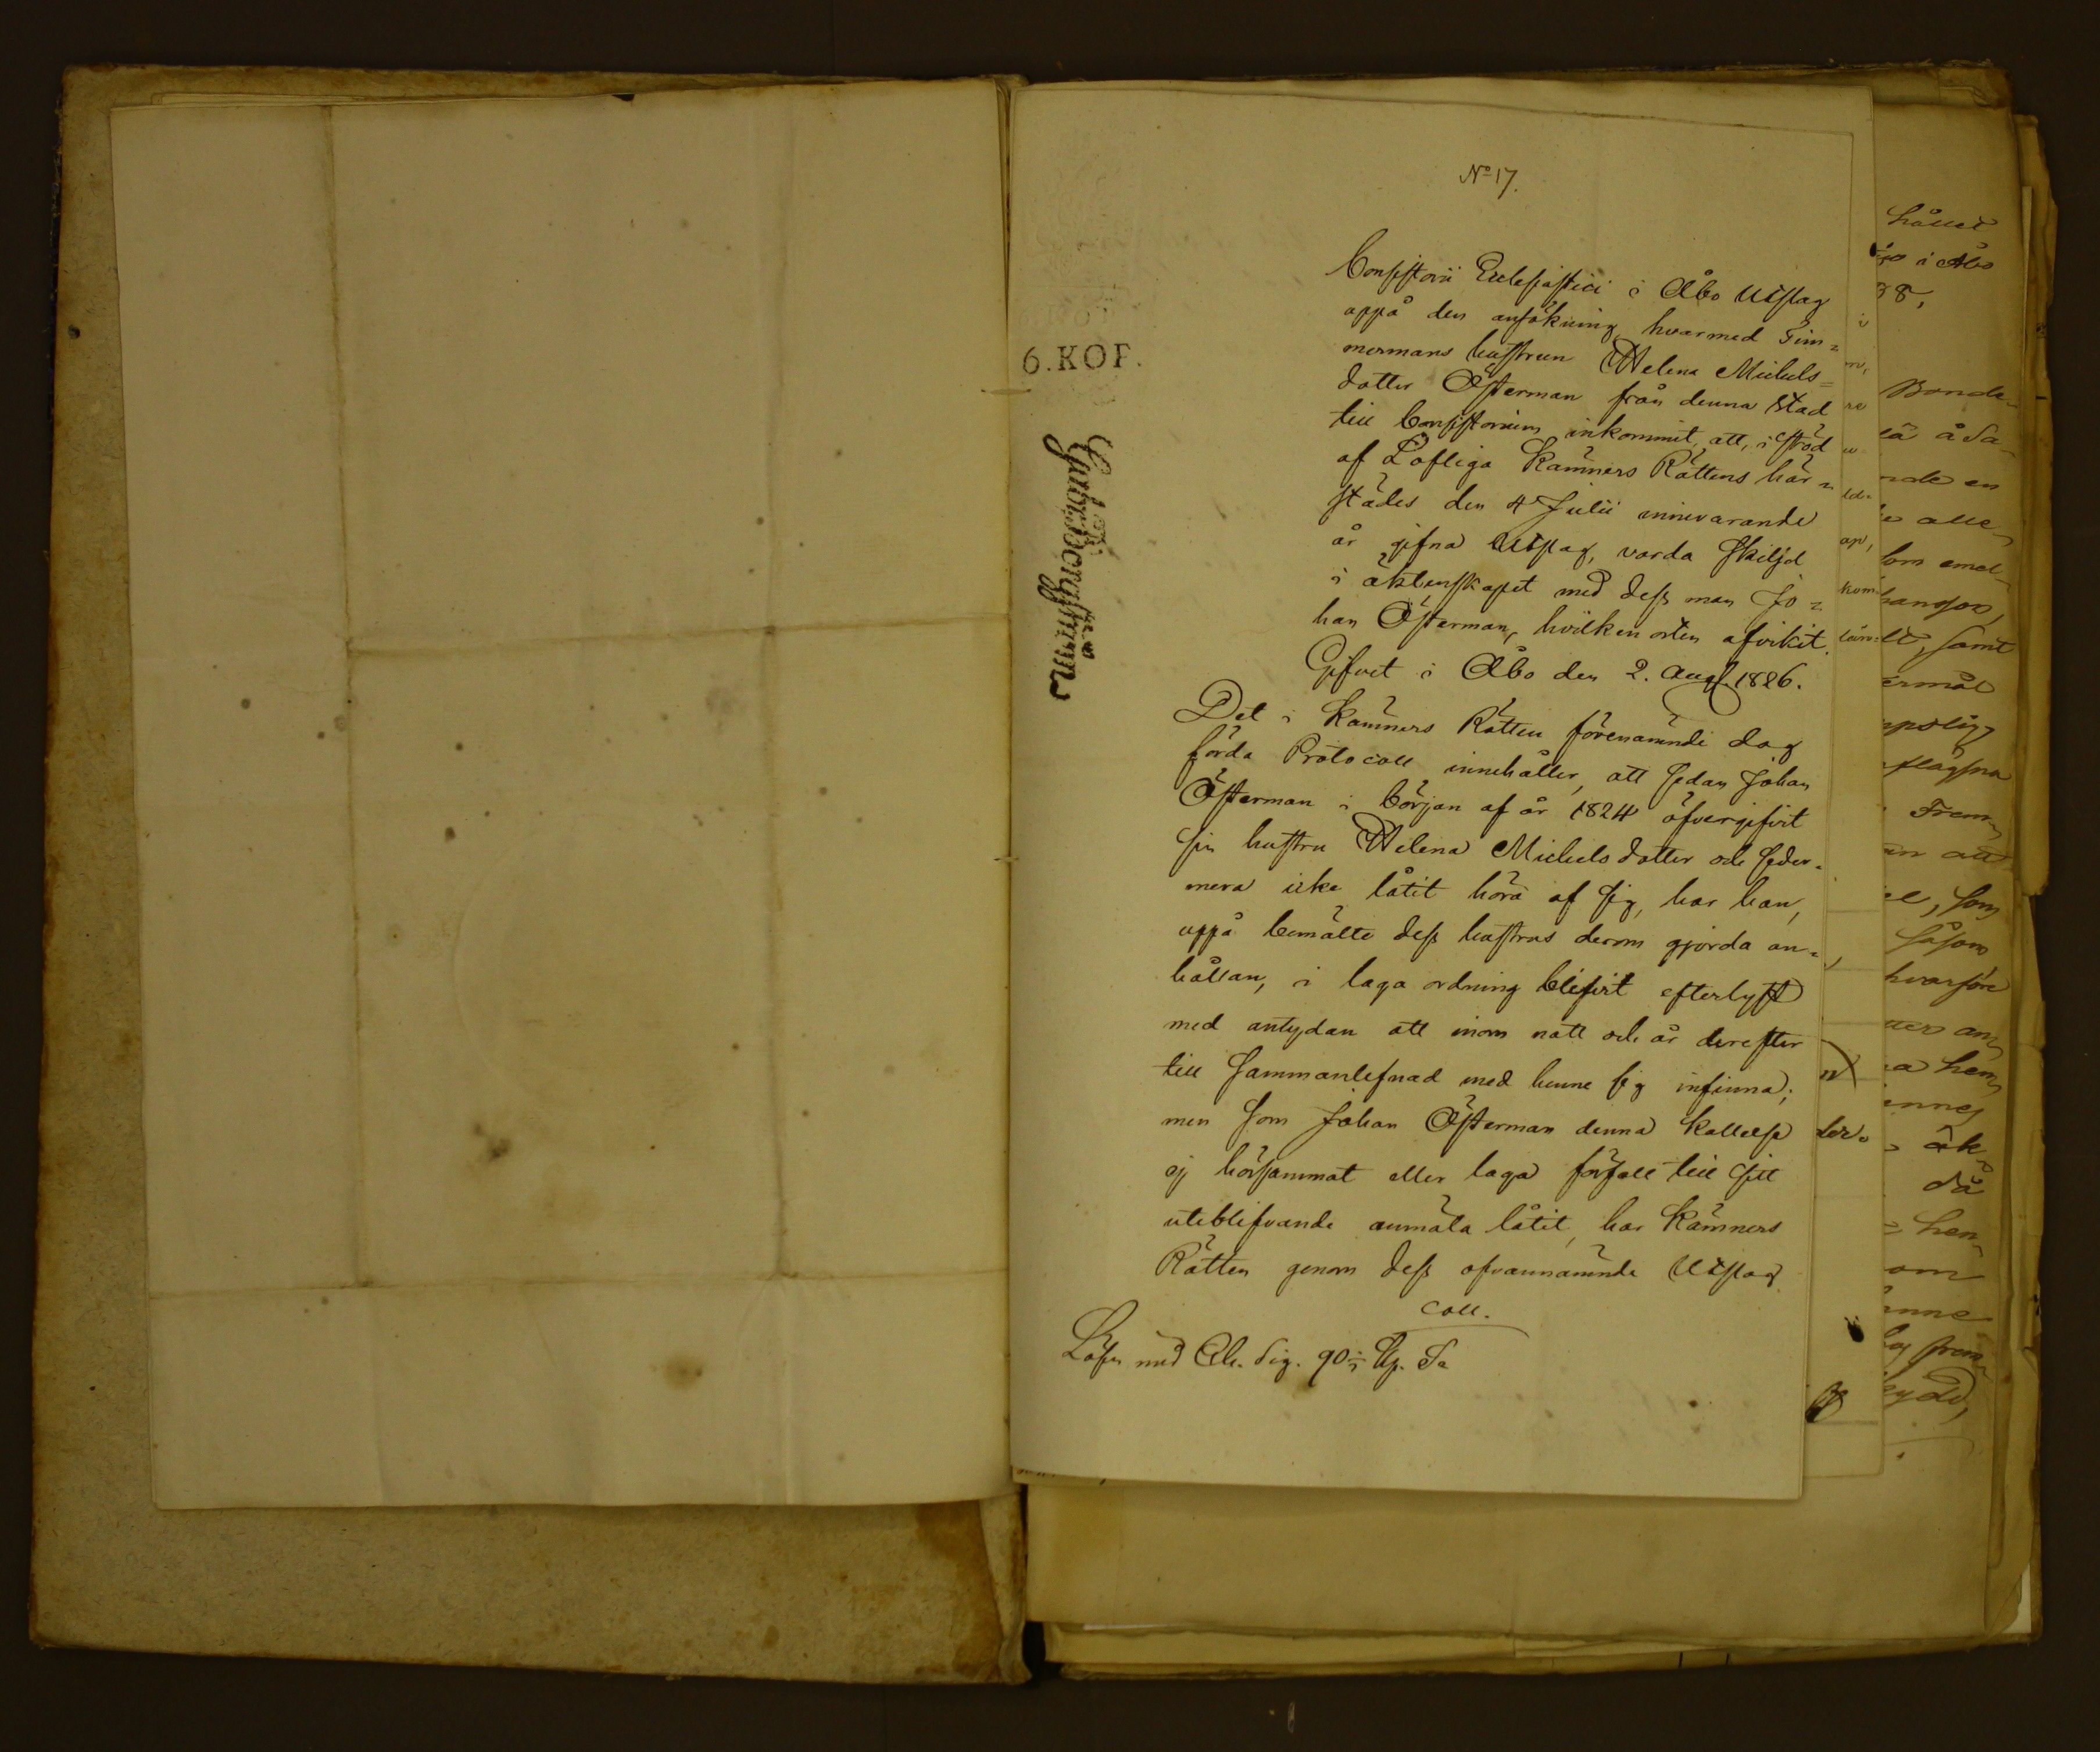 No 17.
Consistorii Ecclesiastici i Åbo Utslag
uppå den ansökning hvarmed Tim=
mermans hustrun Helena Michels=
dotter Österman från denna Stad
till Consistorium inkommit, att, i stöd
af Lofliga Kämners Rättens här=
städes den 4 Julii innevarande
år gifna Utslag, varda skiljd
i äktenskapet med dess man Jo=
han Österman, hvilken orten afvikit.
Gifvet i Åbo den 2. Aug. 1826.
Det i Kämners Rätten förenämnde dag
förda Protocoll innehåller, att sedan Johan
Österman i början af år 1824 öfvergifvit
sin hustru Helena Michelsdotter och seder=
mera icke låtit höra af sig, har han,
uppå bemälte dess hustrus derom gjorda an=
hållan, i laga ordning blifvit efterlyst
med antydan att inom natt och år derefter
till sammanlefnad med henne sig infinna;
men som Johan Österman denna kallelse
ej hörsammat eller laga förfall till sitt
uteblifvande anmäla låtit, har Kämners
Rätten genom dess ofvannämnde Utslag
Coll.
Lösen med Ch. Sig. 90
6. KOP.
hållet
i Åbo
38,
Bonde-
en
alle-
emel-
samt
Frem-
att
som
såsom
hvarföre
hem-
äk-
då
hen-
om